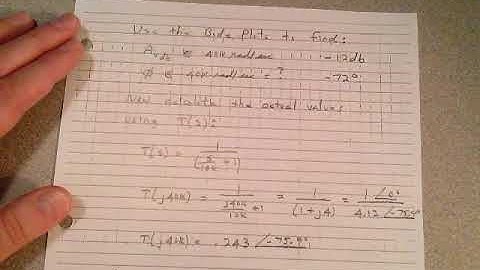 Use the Bode Plots to find:
Avdb @ 40K rad/sec -12db
Ø @ 40K rad/sec = ? -72°
Now calculate the actual values
using T(s):
T(s) = 1/(s/10K + 1)
T(j40K) = 1/(j40K/10K + 1) = 1/(1+j4) = 1∠0°/4.12∠-75.9°
T(j40K) = .243 ∠-75.9°